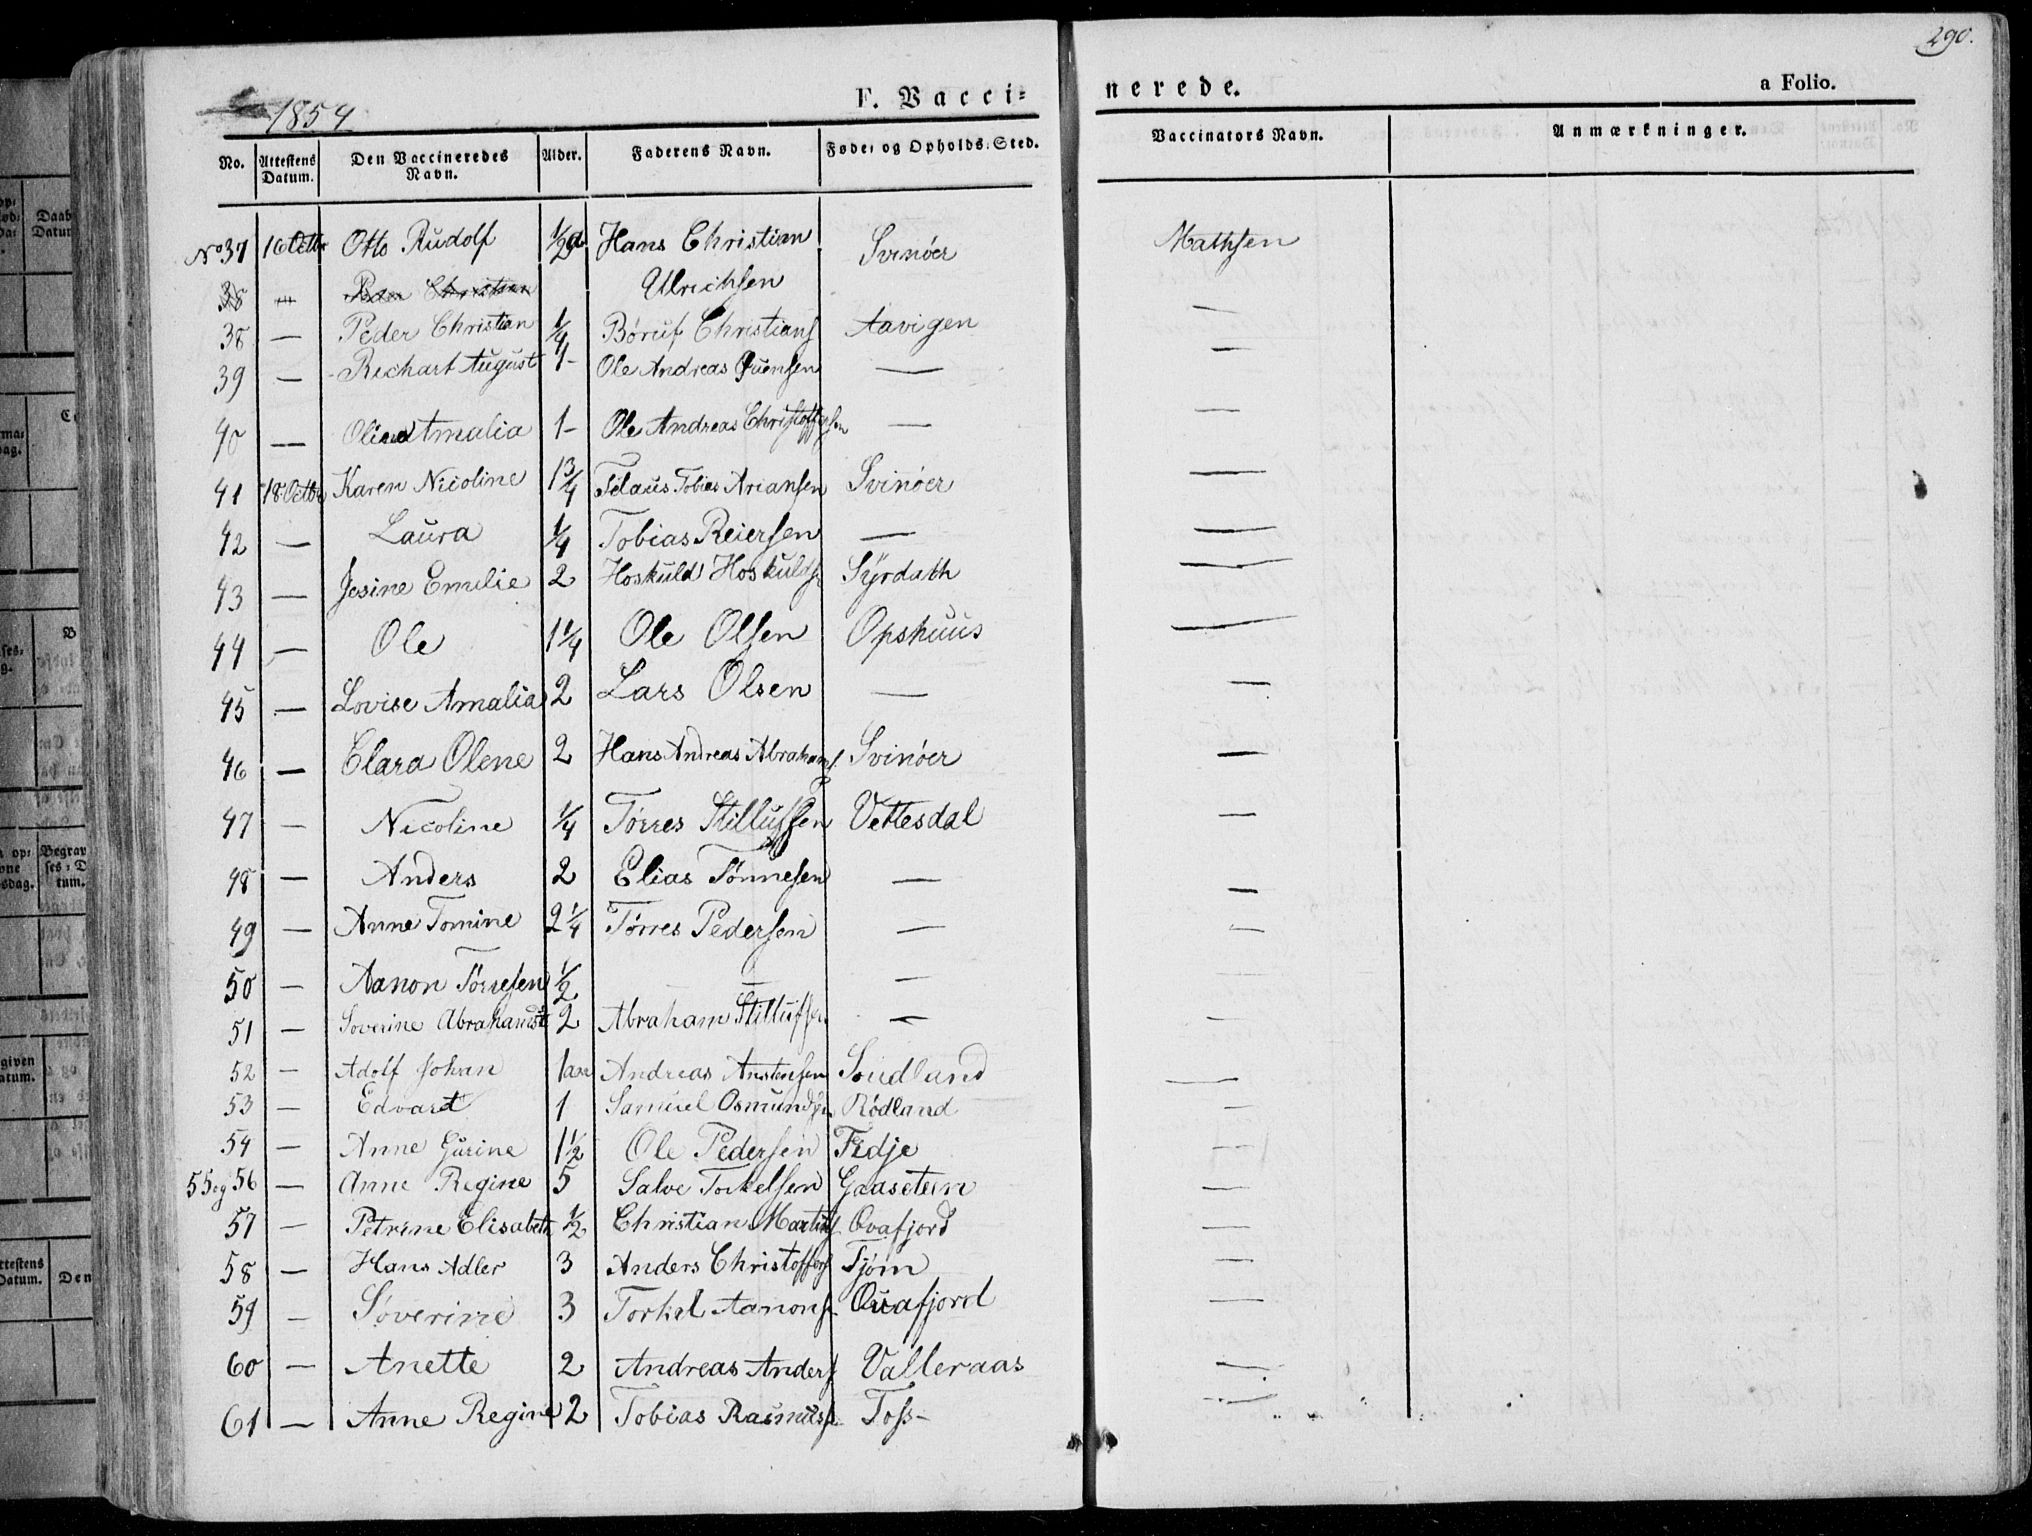 290.
1854
F. Vacci=
nerede.
a Folio.
No. Attestens Datum. Den Vaccineredes Navn. Alder. Faderens Navn. Føde= og Opholds=Sted. Vaccinators Navn. Anmærkninger.
No 37 16 Octbr Otto Rudolf 1/2 Hans Christian Svinöer Mathsen
38 — Peder Christian Ulrichsen
38 — Peder Christian 1/4 Christians Aavigen —
39 — Richart August 1- Ole Andreas — —
40 — Amalia 1- Ole Andreas Christoffersen — —
41 18 Octbr Karen Nicoline 1 3/4 Tobias Ariansen Svinöer —
42 — Laura 1/4 Tobias Reiersen — —
43 — Jesine Emilie 2 Hoskuld Hoskulds Syrdath —
44 — Ole 1 1/4 Ole Olsen Opshuus —
45 — Lovise Amalia 2 Lars Olsen — —
46 — Clara Olene 2 Hans Andreas Abrahams. Svinöer —
47 — Nicoline 1/4 Törres Stillufsen Vettesdal —
48 — Anders 2 Elias Tönnesen — —
49 — Anne Tomine 2 1/4 Törres Pedersen — —
50 — Aanon Törresen 1/2 — — —
51 — Soverine Abrahamsdt 2 Abraham Stillufsen — —
52 — Adolf Johan 1 aar Andreas Anstensen Soudland —
53 — Edvard 1 Samuel Osmundsen Rödland —
54 — Anne Gurine 1 1/2 Ole Pedersen Fidje —
55 og 56 — Anne Regine 5 Salve Torkelsen Gaasesteen —
57 — Petrine Elisabeth 1/2 Christian Martins Qvafjord —
58 — Hans Adler 3 Anders Christoffers Tjöm —
59 — Söverine 3 Torkel Aanons Quafjord —
60 — Anette 2 Andreas Anders Valleraas —
61 — Anne Regine 2 Tobias Rasmuss Foss- —